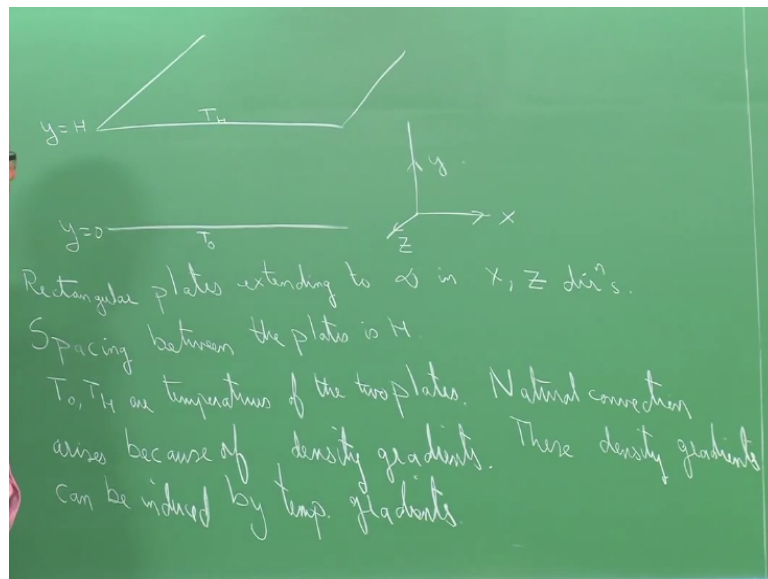 y=H
T_H
y
X
Z
y=0
T_0
Rectangular plates extending to ∞ in X, Z dirⁿs.
Spacing between the plates is H.
T_0, T_H are temperatures of the two plates. Natural convection
arises because of density gradients. These density gradients
can be induced by temp. gradients.